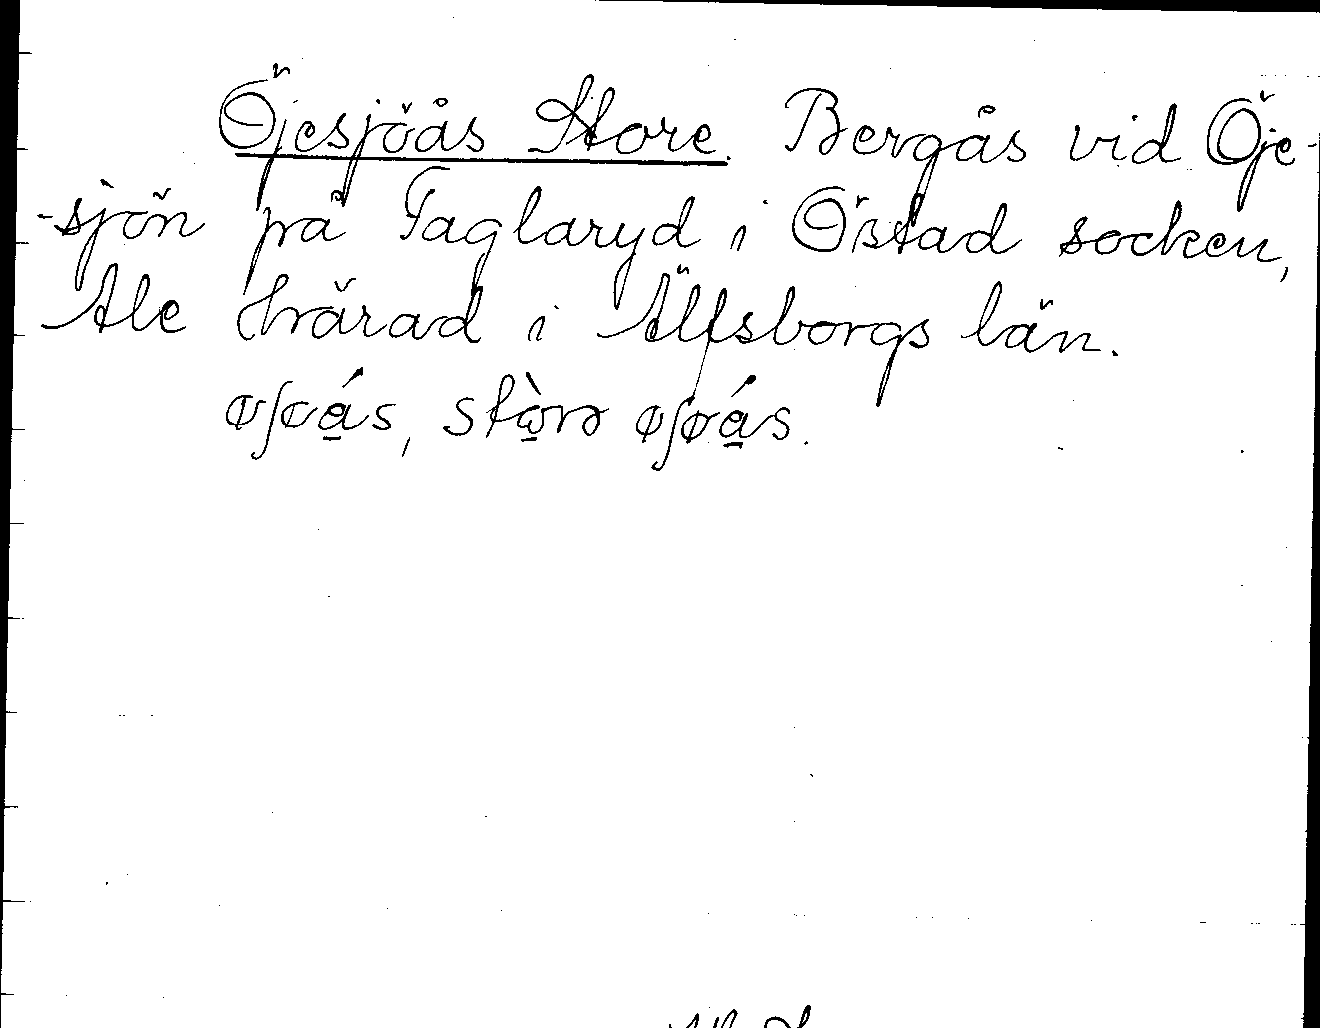 Öjesjöås Store. Bergås vid Öje-
-sjön på Taglaryd i Östad socken,
Ale härad i Älfsborgs län.